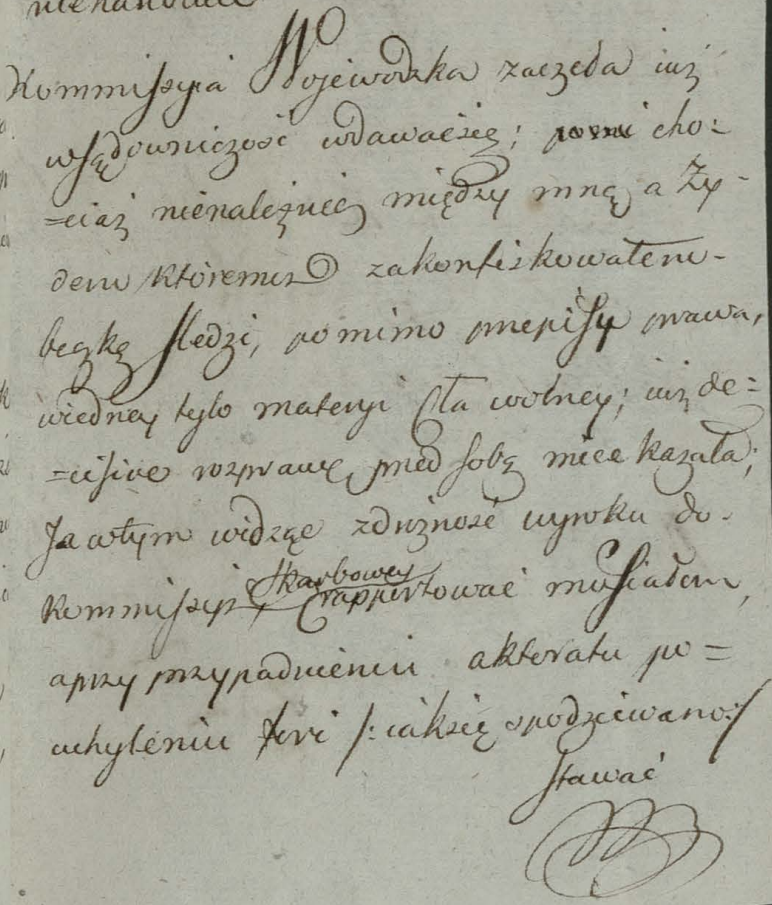 Kommissyia Wojewodzka zaczęła iuż
wsądowniczość wdawać się; cho:
=ciaż nienależnie między mną a Ży-
dem któremu zakonfiskowałem-
beczkę sledzi, pomimo przepisy prawa,
wiedney tylo materyi Cła wolney; iuż de=
=cisive rozprawę przed sobą miec kazała;
Ja wtym widząc zdrożność wyroku do-
Kommissyi Skarbowey rapportować musiałem,
aprzy przypadnieniu aktoratu po=
uchyleniu fori /: iak się spodziewano:/
stawać